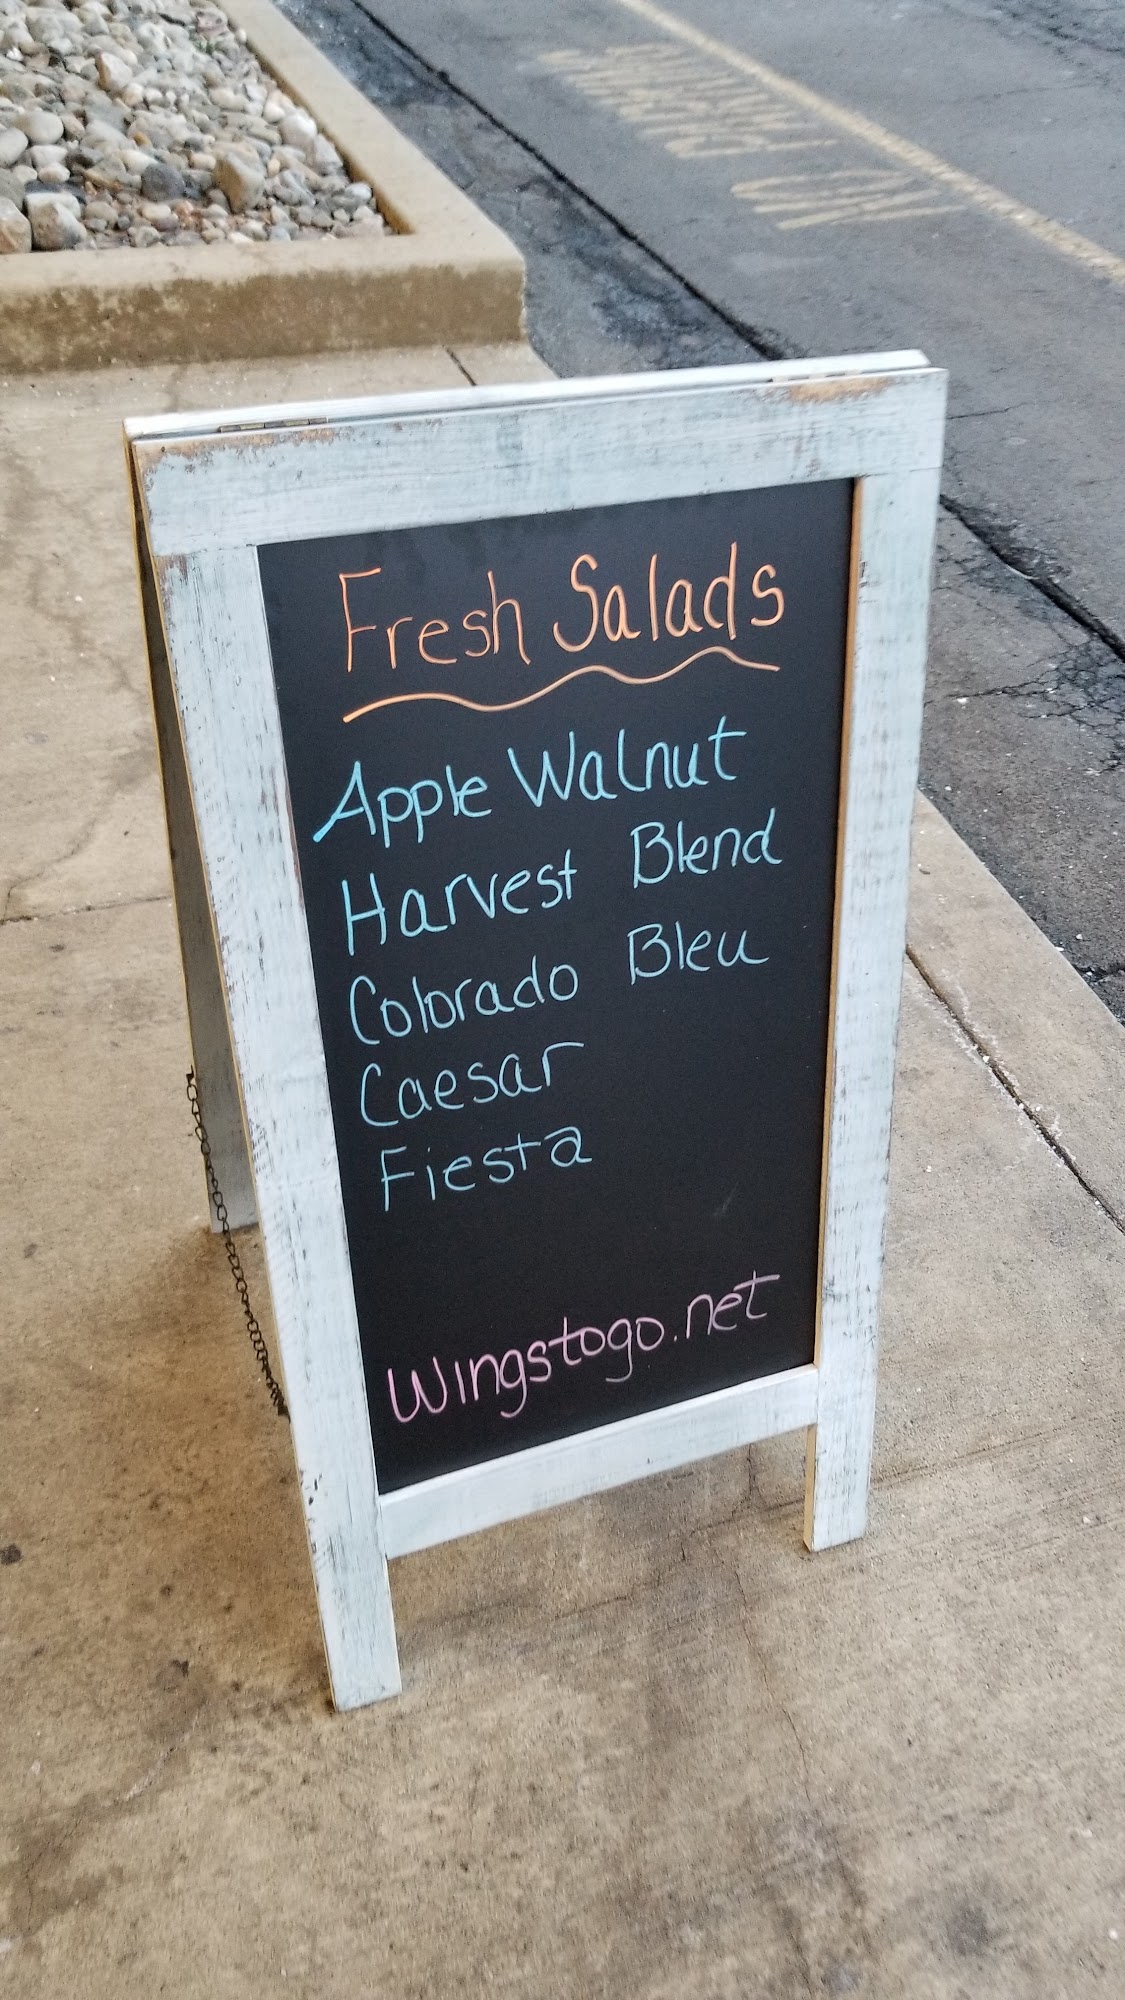 NO
PARKING
Fresh Salads
Apple Walnut
Harvest Blend
Colorado Bleu
Caesar
Fiesta
Wingstogo.net